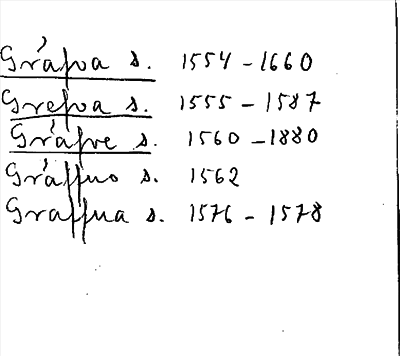 Gråpva s. 1554-1660
Grepva s. 1555-1587
Gråpve s. 1560-1880
Gråppuo s. 1562
Grappua s. 1576-1578